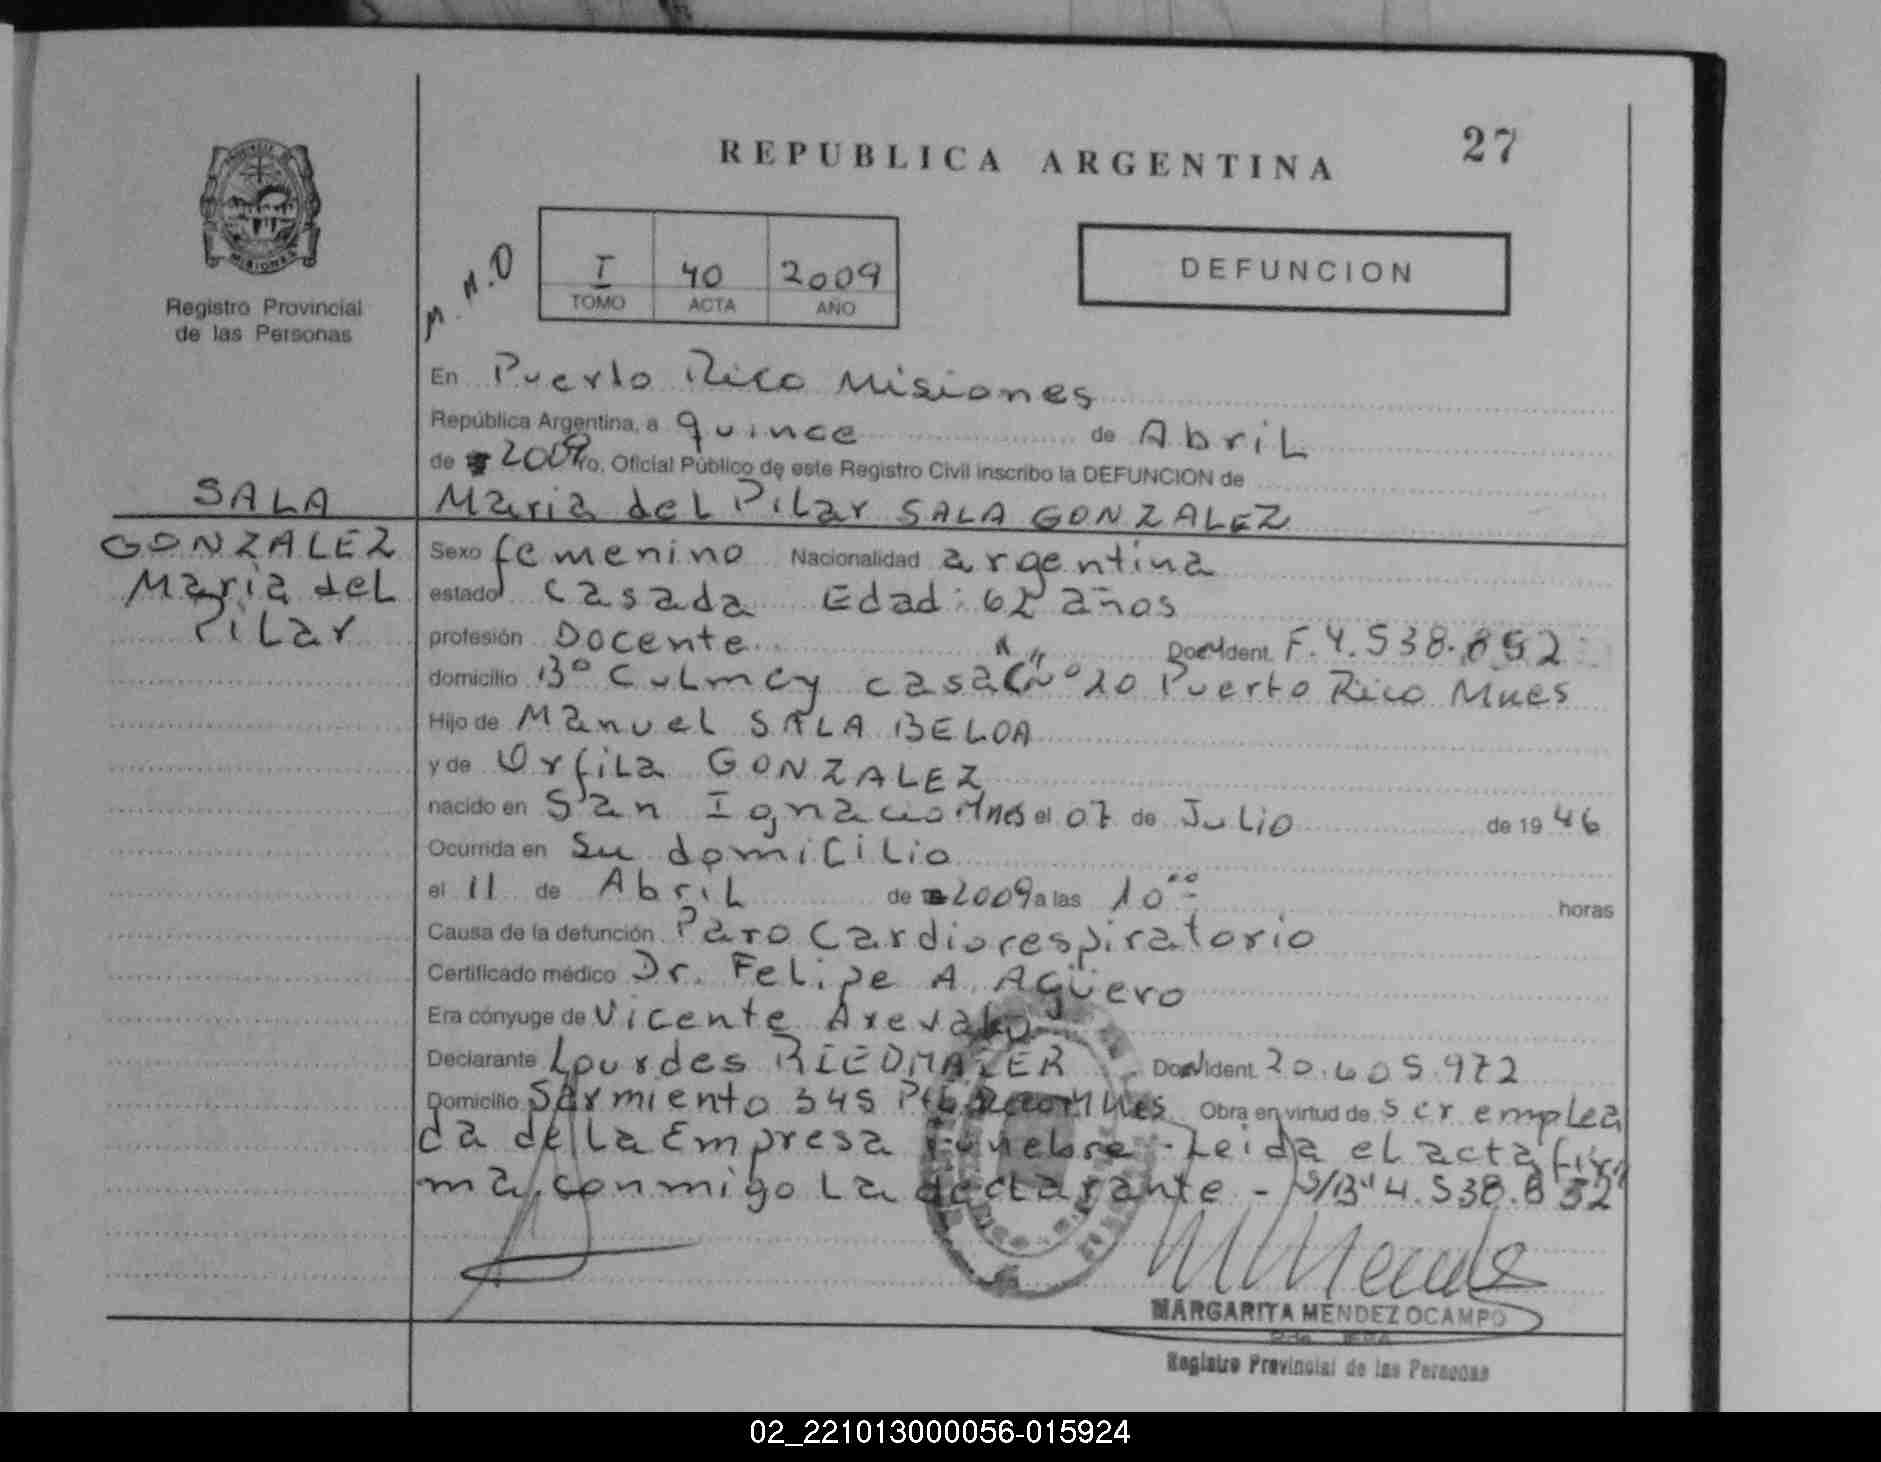 REPUBLICA ARGENTINA
27
PROVINCIA DE
MISIONES
Registro Provincial
de las Personas
M.M.O
I 40 2009
TOMO ACTA AÑO
DEFUNCION
En Puerto Rico Misiones
República Argentina, a quince de Abril
de 2009 Yo, Oficial Público de este Registro Civil inscribo la DEFUNCION de
Maria del Pilar SALA GONZALEZ
SALA
GONZALEZ
Maria del
Pilar
Sexo femenino Nacionalidad argentina
estado casada Edad: 62 años
profesión Docente Doc. Ident. F.4.538.852
domicilio Bº Culmey casa "Nº 20 Puerto Rico Mnes
Hijo de Manuel SALA BELOA
y de Orfila GONZALEZ
nacido en San Ignacio Mnes el 07 de Julio de 19 46
Ocurrida en Su domicilio
el 11 de Abril de 2009 a las 10 00 horas
Causa de la defunción Paro Cardiorespiratorio
Certificado médico Dr. Felipe A. Agüero
Era cónyuge de Vicente Arevalo
Declarante Lourdes RIEDMAIER Doc. Ident. 20.605.972
Domicilio Sarmiento 345 Pto Rico Mnes Obra en virtud de ser emplea
da de la Empresa Funebre - Leida el acta fir
ma conmigo la declarante - S/B "4.538.852"
MARGARITA MENDEZ OCAMPO
Registro Provincial de las Personas
02_221013000056-015924